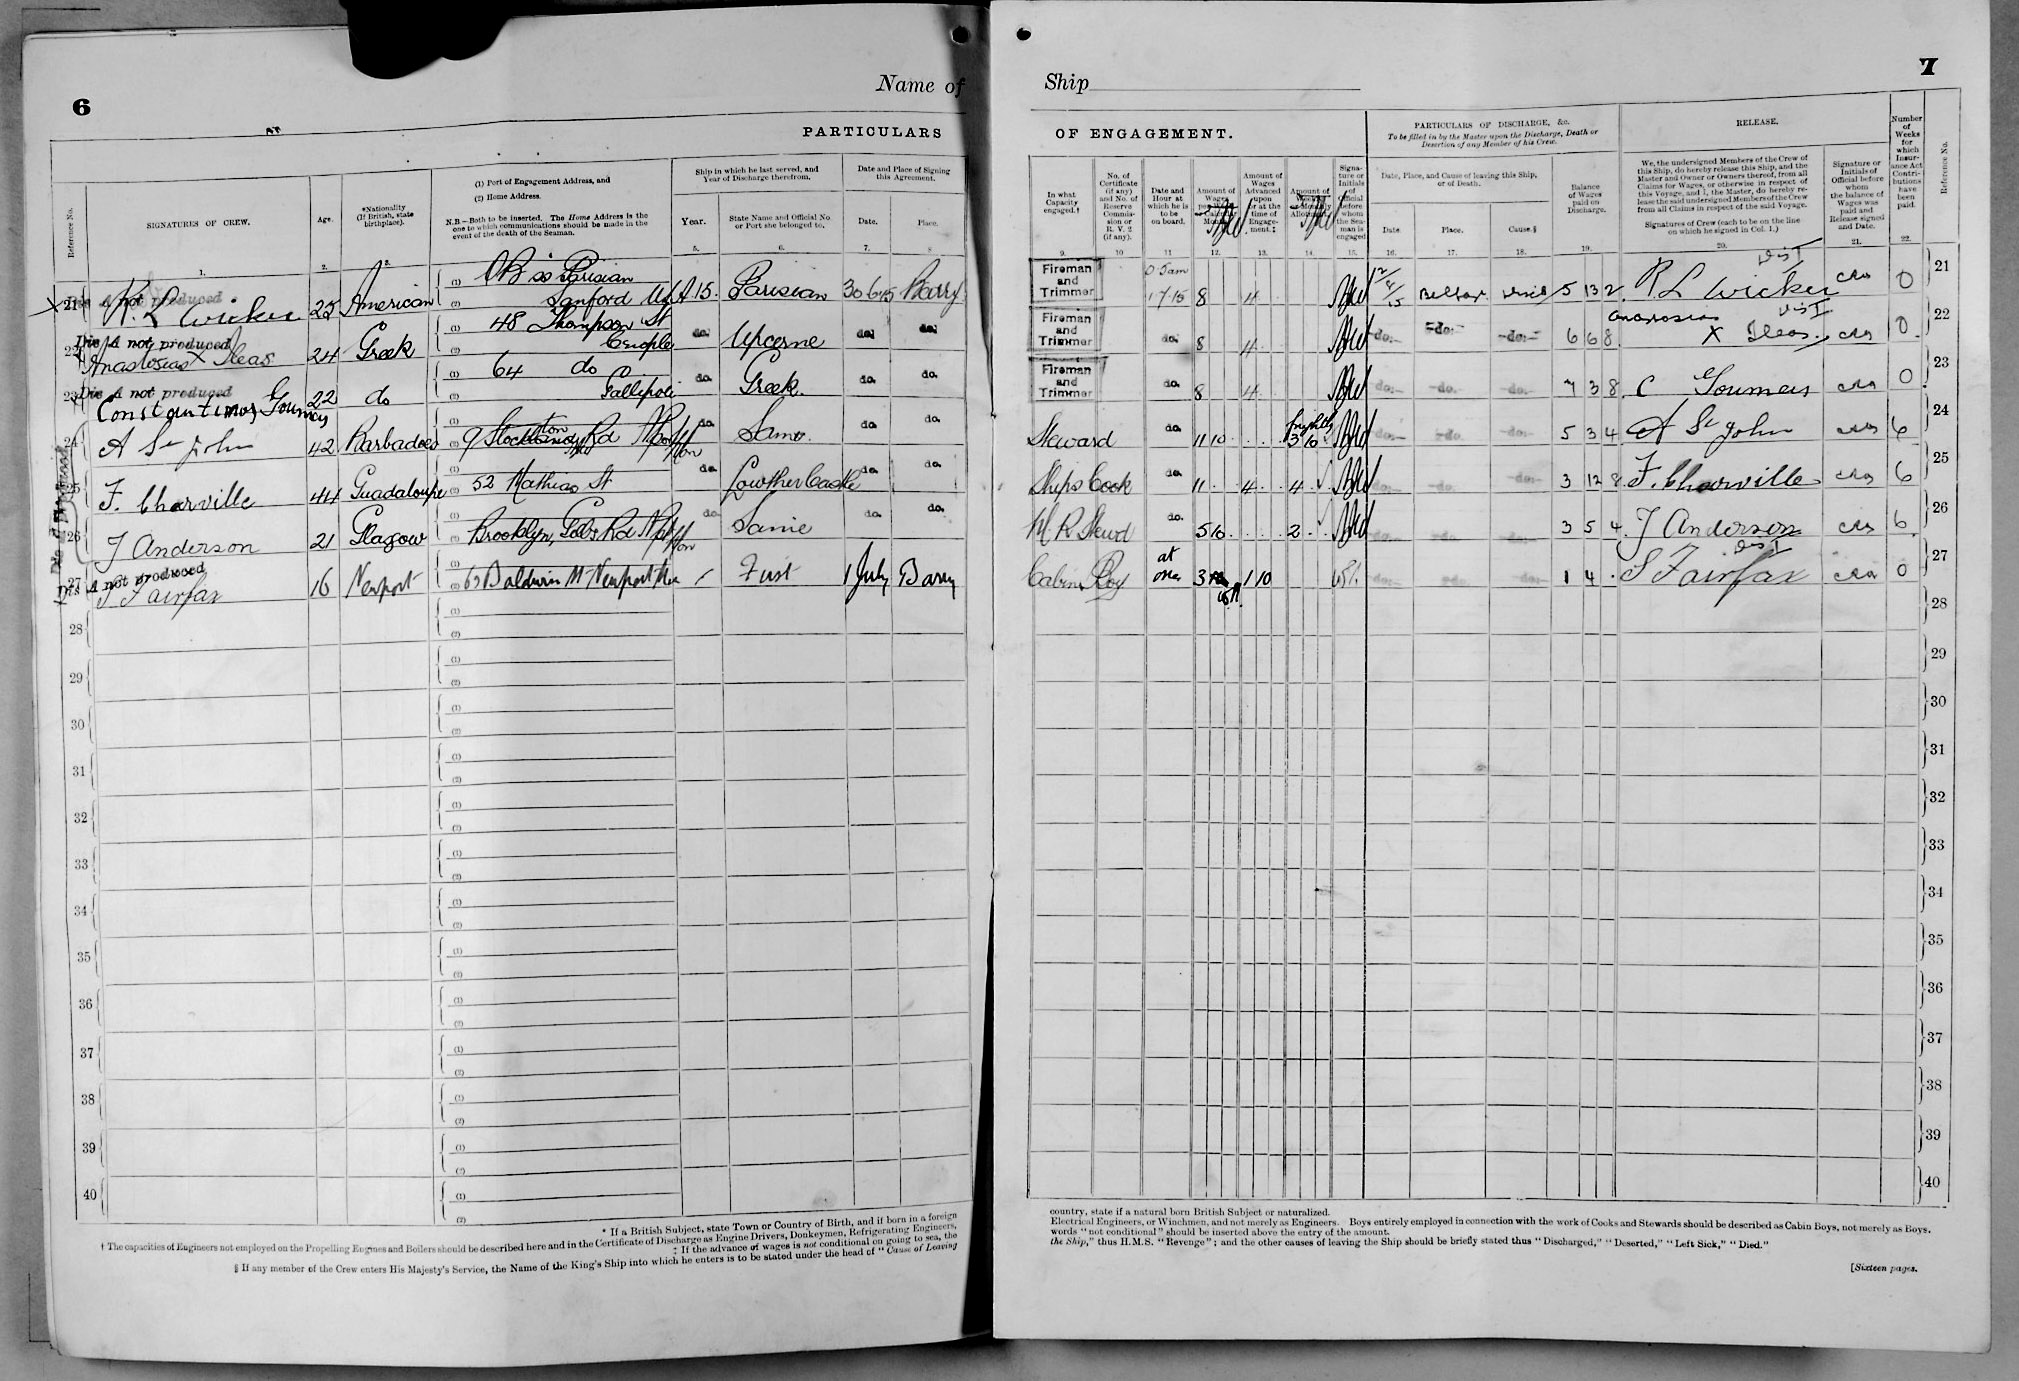 6
Name of
PARTICULARS
Reference No.
SIGNATURES OF CREW.
Age.
*Nationality
(If British, state
birthplace).
(1) Port of Engagement Address, and
(2) Home Address.
N.B.—Both to be inserted. The Home Address is the
one to which communications should be made in the
event of the death of the Seaman.
Ship in which he last served, and
Year of Discharge therefrom.
Year.
State Name and Official No.
or Port she belonged to.
Date and Place of Signing
this Agreement.
Date.
Place.
1. 2. 3. 5. 6. 7. 8
21 Dis A not produced
R. L Wicker 25 American Parisian
Sanford 15. Parisian 30 6 15 Barry
22 Dis A not produced
Anastosias X Ileas 24 Greek 48 Thompson St
do. Upcerne do. do.
23 Dis A not produced
Constantinos Goumas 22 do 64 do
Gallipoli do. Greek. do. do.
24 A St John 42 Barbadoes 9 Rd do. Same. do. do.
25 F. Charville 44 Guadaloupe 52 Mathias St do. Lowther Castle do. do.
26 J Anderson 21 Glasgow Brooklyn, Rd do. Same do. do.
27 Dis A not produced
S Fairfax 16 Newport 63 Baldwin St Newport Mon / First 1 July Barry
28
29
30
31
32
33
34
35
36
37
38
39
40
* If a British Subject, state Town or Country of Birth, and if born in a foreign
† The capacities of Engineers not employed on the Propelling Engines and Boilers should be described here and in the Certificate of Discharge as Engine Drivers, Donkeymen, Refrigerating Engineers,
‡ If the advance of wages is not conditional on going to sea, the
§ If any member of the Crew enters His Majesty's Service, the Name of the King's Ship into which he enters is to be stated under the head of "Cause of Leaving
Ship
7
OF ENGAGEMENT.
PARTICULARS OF DISCHARGE, &c.
To be filled in by the Master upon the Discharge, Death or
Desertion of any Member of his Crew.
RELEASE.
Number
of
Weeks
for
which
Insur-
ance Act
Contri-
butions
have
been
paid.
Reference No.
In what
Capacity
engaged.†
No. of
Certificate
(if any)
and No. of
Reserve
Commis-
sion or
R. V. 2
(if any).
Date and
Hour at
which he is
to be
on board.
Amount of
Wages
per
Calendar
Month.
Amount of
Wages
Advanced
upon
or at the
time of
Engage-
ment.‡
Amount of
Monthly
Allotment.
Signa-
ture or
Initials
of
Official
before
whom
the Sea-
man is
engaged
Date, Place, and Cause of leaving this Ship,
or of Death.
Date.
Place.
Cause.§
Balance
of Wages
paid on
Discharge.
We, the undersigned Members of the Crew of
this Ship, do hereby release this Ship, and the
Master and Owner or Owners thereof, from all
Claims for Wages, or otherwise in respect of
this Voyage, and I, the Master, do hereby re-
lease the said undersigned Members of the Crew
from all Claims in respect of the said Voyage.
Signatures of Crew (each to be on the line
on which he signed in Col. 1.)
Signature or
Initials of
Official before
whom
the balance of
Wages was
paid and
Release signed
and Date.
9. 10 11 12. 13. 14. 15. 16. 17. 18. 19. 20. 21. 22.
Fireman
and
Trimmer 8 4 5 13 2 R L Wicker 0 21
Fireman
and
Trimmer do. 8 4 do. do. do. 6 6 8 X Ileas 0 22
Fireman
and
Trimmer do. 8 4 do. do. do. 7 3 8 C Goumas 0 23
Steward do. 11 10 3 10 do. do. do. 5 3 4 A St John 6 24
Ships Cook do. 11 4 4 do. do. do. 3 12 8 F. Charville 6 25
M R Stewd do. 5 10 2 3 5 4 J Anderson 6 26
Cabin Boy at once 3 1 10 do. do. do. 1 4 S Fairfax 0 27
28
29
30
31
32
33
34
35
36
37
38
39
40
country, state if a natural born British Subject or naturalized.
Electrical Engineers, or Winchmen, and not merely as Engineers. Boys entirely employed in connection with the work of Cooks and Stewards should be described as Cabin Boys, not merely as Boys.
words "not conditional" should be inserted above the entry of the amount.
the Ship," thus H.M.S. "Revenge"; and the other causes of leaving the Ship should be briefly stated thus "Discharged," "Deserted," "Left Sick," "Died."
[Sixteen pages.